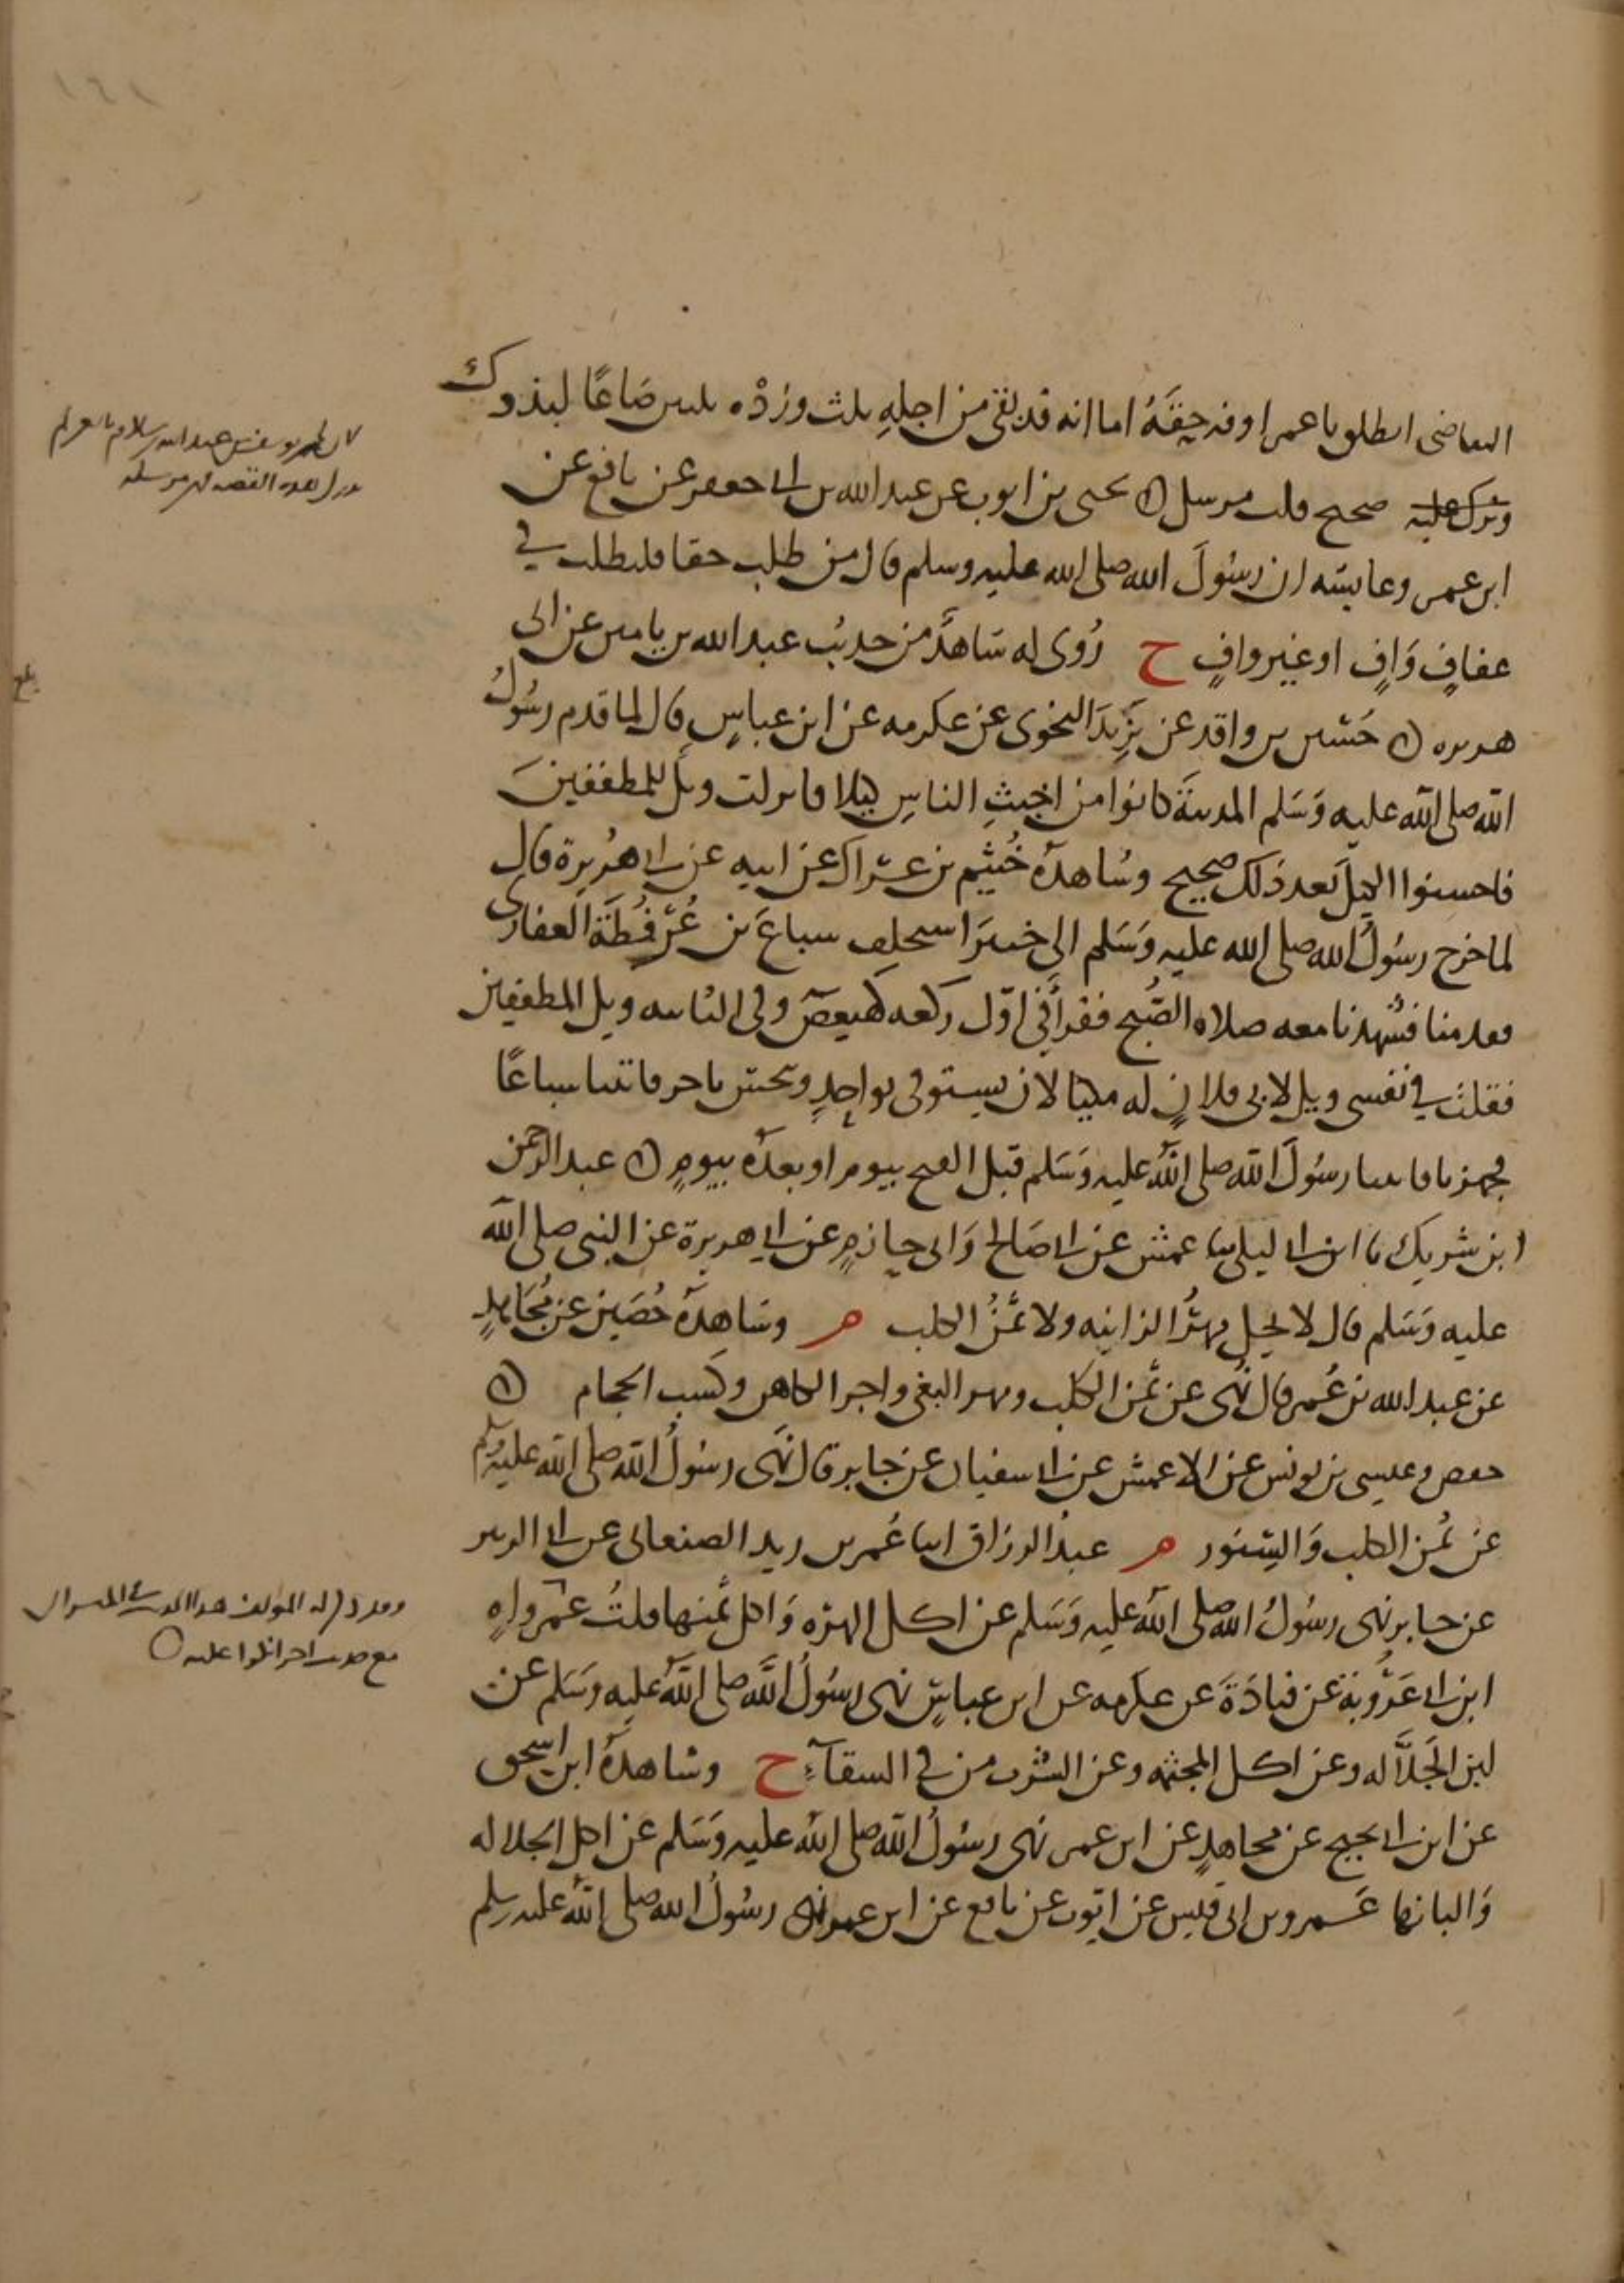 التقاضى انطلق يا عمر اوفه حِقَّهُ اما انه قد بقى من اجلهِ ثلث وزِدْه ثلثين صَاعًا لبذوك
وتزك عليه صحيح قلت مرسل ○ يحيى بن ايوب عن عبد الله بن ابى جعفر عن نافع عن
ابن عمر وعايشه ان رسُولَ الله صلى الله عليه وسلم قال من طلب حقا فليطلب فى
عفافٍ وَافٍ او غير وافٍ ح رُوى له شاهدٌ من حديث عبد الله بن يامين عن ابى
هريره ○ حُسين بن واقد عن يزيدَ النحوى عن عكرمه عن ابن عباسٍ قال لما قدم رسُولُ
الله صلى الله عليه وَسَلم المدينَةَ كانوا من اخبثِ الناسِ كيلا فانزلت ويلٌ للمطففينَ
فاحسنوا الكيلَ بعد ذلك صحيح وشاهدهُ خُثيم بن عراك عن ابيه عن ابى هُريرة قال
لما خرج رسُولُ الله صلى الله عليه وَسَلم الى خيبرَ استخلف سباعَ بن عُرْفُطَةَ الغفارى
فقدمنا فشهدنا معه صلاه الصُّبح فقرأ فى اوّل ركعه كهيعص وفى الثانيه ويل المطففين
فقلتُ فى نفسى ويل لابى فلانٍ له مكيالان يستوفى بواحدٍ ويبخس باخر فاتينا سباعًا
فجهزنا فاتينا رسُولَ الله صلى اللهُ عليه وَسَلم قبل الفتح بيوم او بعدَهُ بيومٍ ○ عبد الرحمن
ابن شريك نا ابن ابى ليلى نا عمش عن ابى صَالح وَابى حازمٍ عن ابى هريرة عن النبى صلى الله
عليه وَسَلم قال لا يحل مهرُ الزانيه ولا ثَمَنُ الكلب م وشاهدهُ حُصَين عن مُجَاهدٍ
عن عبد الله بن عُمر قال نُهى عن ثمن الكلب ومهر البغى واجر الكاهن وكسب الحجام ○
حفص وعيسى بن يونس عن الاعمش عن ابى سفيان عن جابر قال نَهَى رسُولُ الله صلى الله عليه وسلم
عن ثمن الكلب وَالسِنور م عبدُ الرزاق انبا عُمر بن زيد الصنعانى عن ابى الزبير
عن جابر نهى رسُولُ الله صلى الله عليه وَسَلم عن اكل الهرّه وَاكل ثمنها قلتُ عمر واهٍ
ابن ابى عَرُوبَة عن قتادَةَ عن عكرمه عن ابن عباسٍ نهى رسُولُ اللَّه صلى اللَّهُ عليه وَسَلم عن
لبن الجَلاَّله وعن اكل المجثمه وعن الشرب من فى السقآءِ ح وشاهدهُ ابن اسحق
عن ابن ابى نجيح عن مجاهدٍ عن ابن عمر نهى رسُولُ الله صلى اللهُ عليه وَسَلم عن اكل الجلاله
وَالبانها عَمرو بن ابى قيس عن ايّوب عن نافع عن ابن عمر نهى رسُولُ الله صلى اللهُ عليه وسلم